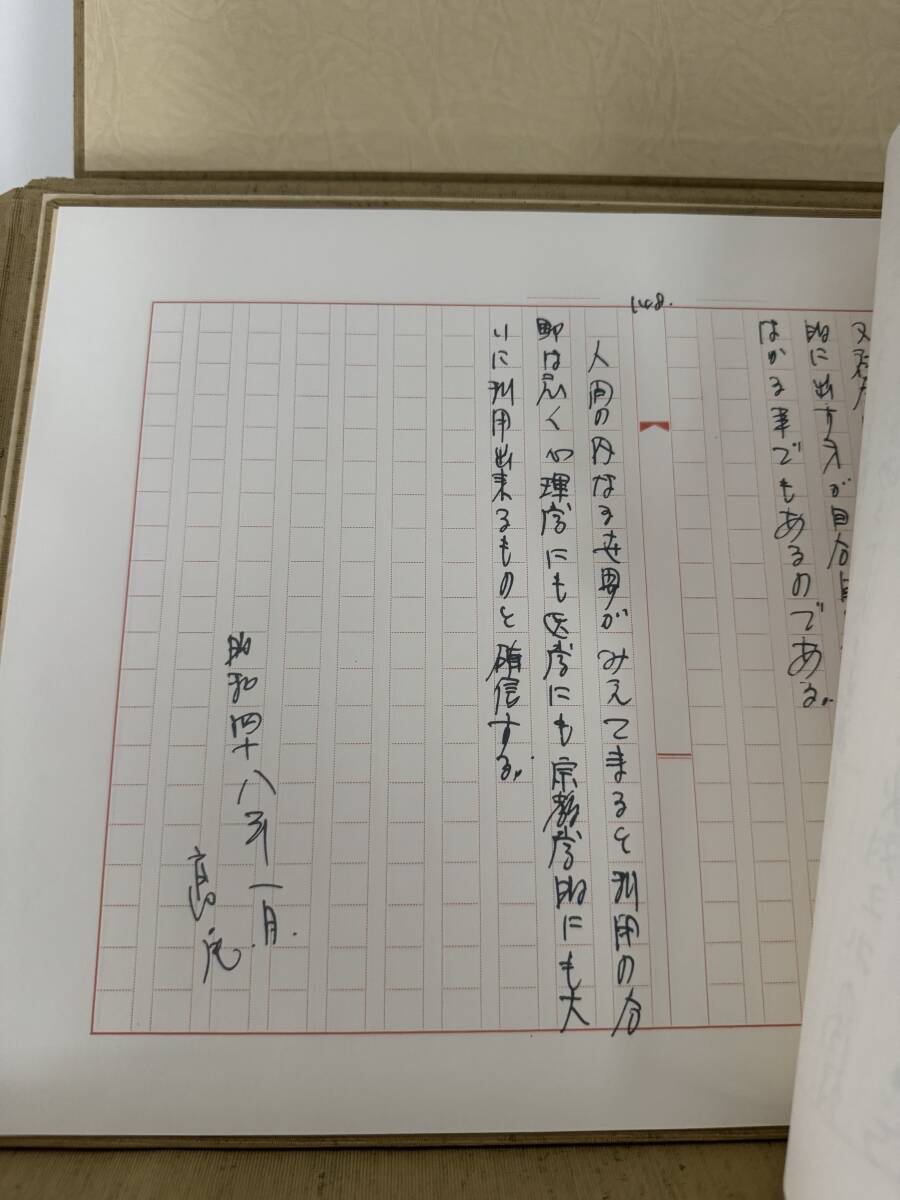 的に出す
が自分
はかる事でもあるのである。
148.
人間の内なる世界がみえてまると利用の分
野は広く心理学にも医学にも宗教学的にも大
いに利用出来るものと確信する。
昭和四十八年一月.